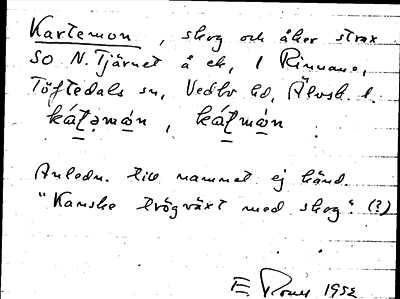 Kartemon, skog och åker strax
SO N. Tjärnet å ek, 1 Rinnane,
Töftedals sn, Vedbo hd, Älvsb. l.
káťəmòn, káťmòn
Anledn. till namnet ej känd.
"Kanske trögväxt med skog". (?)
E 1952